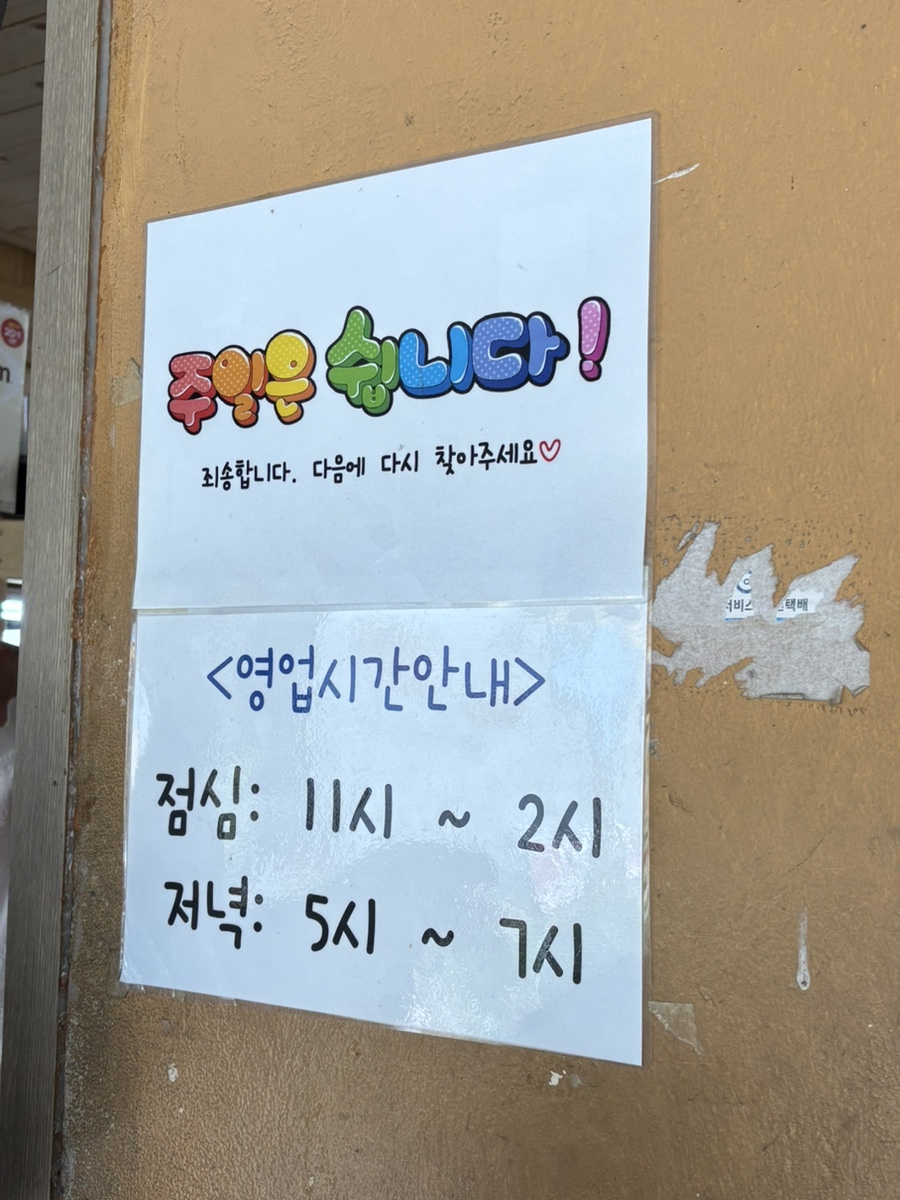 주일은 쉽니다!
죄송합니다. 다음에 다시 찾아주세요♡
<영업시간안내>
점심: 11시 ~ 2시
저녁: 5시 ~ 7시
택배